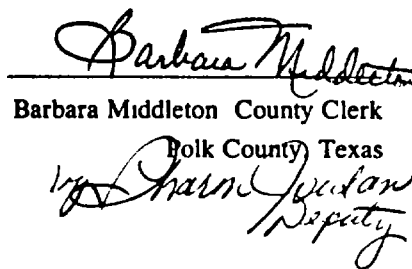 Barbara Middleton
Barbara Middleton County Clerk
Polk County, Texas
by Sharon
Deputy